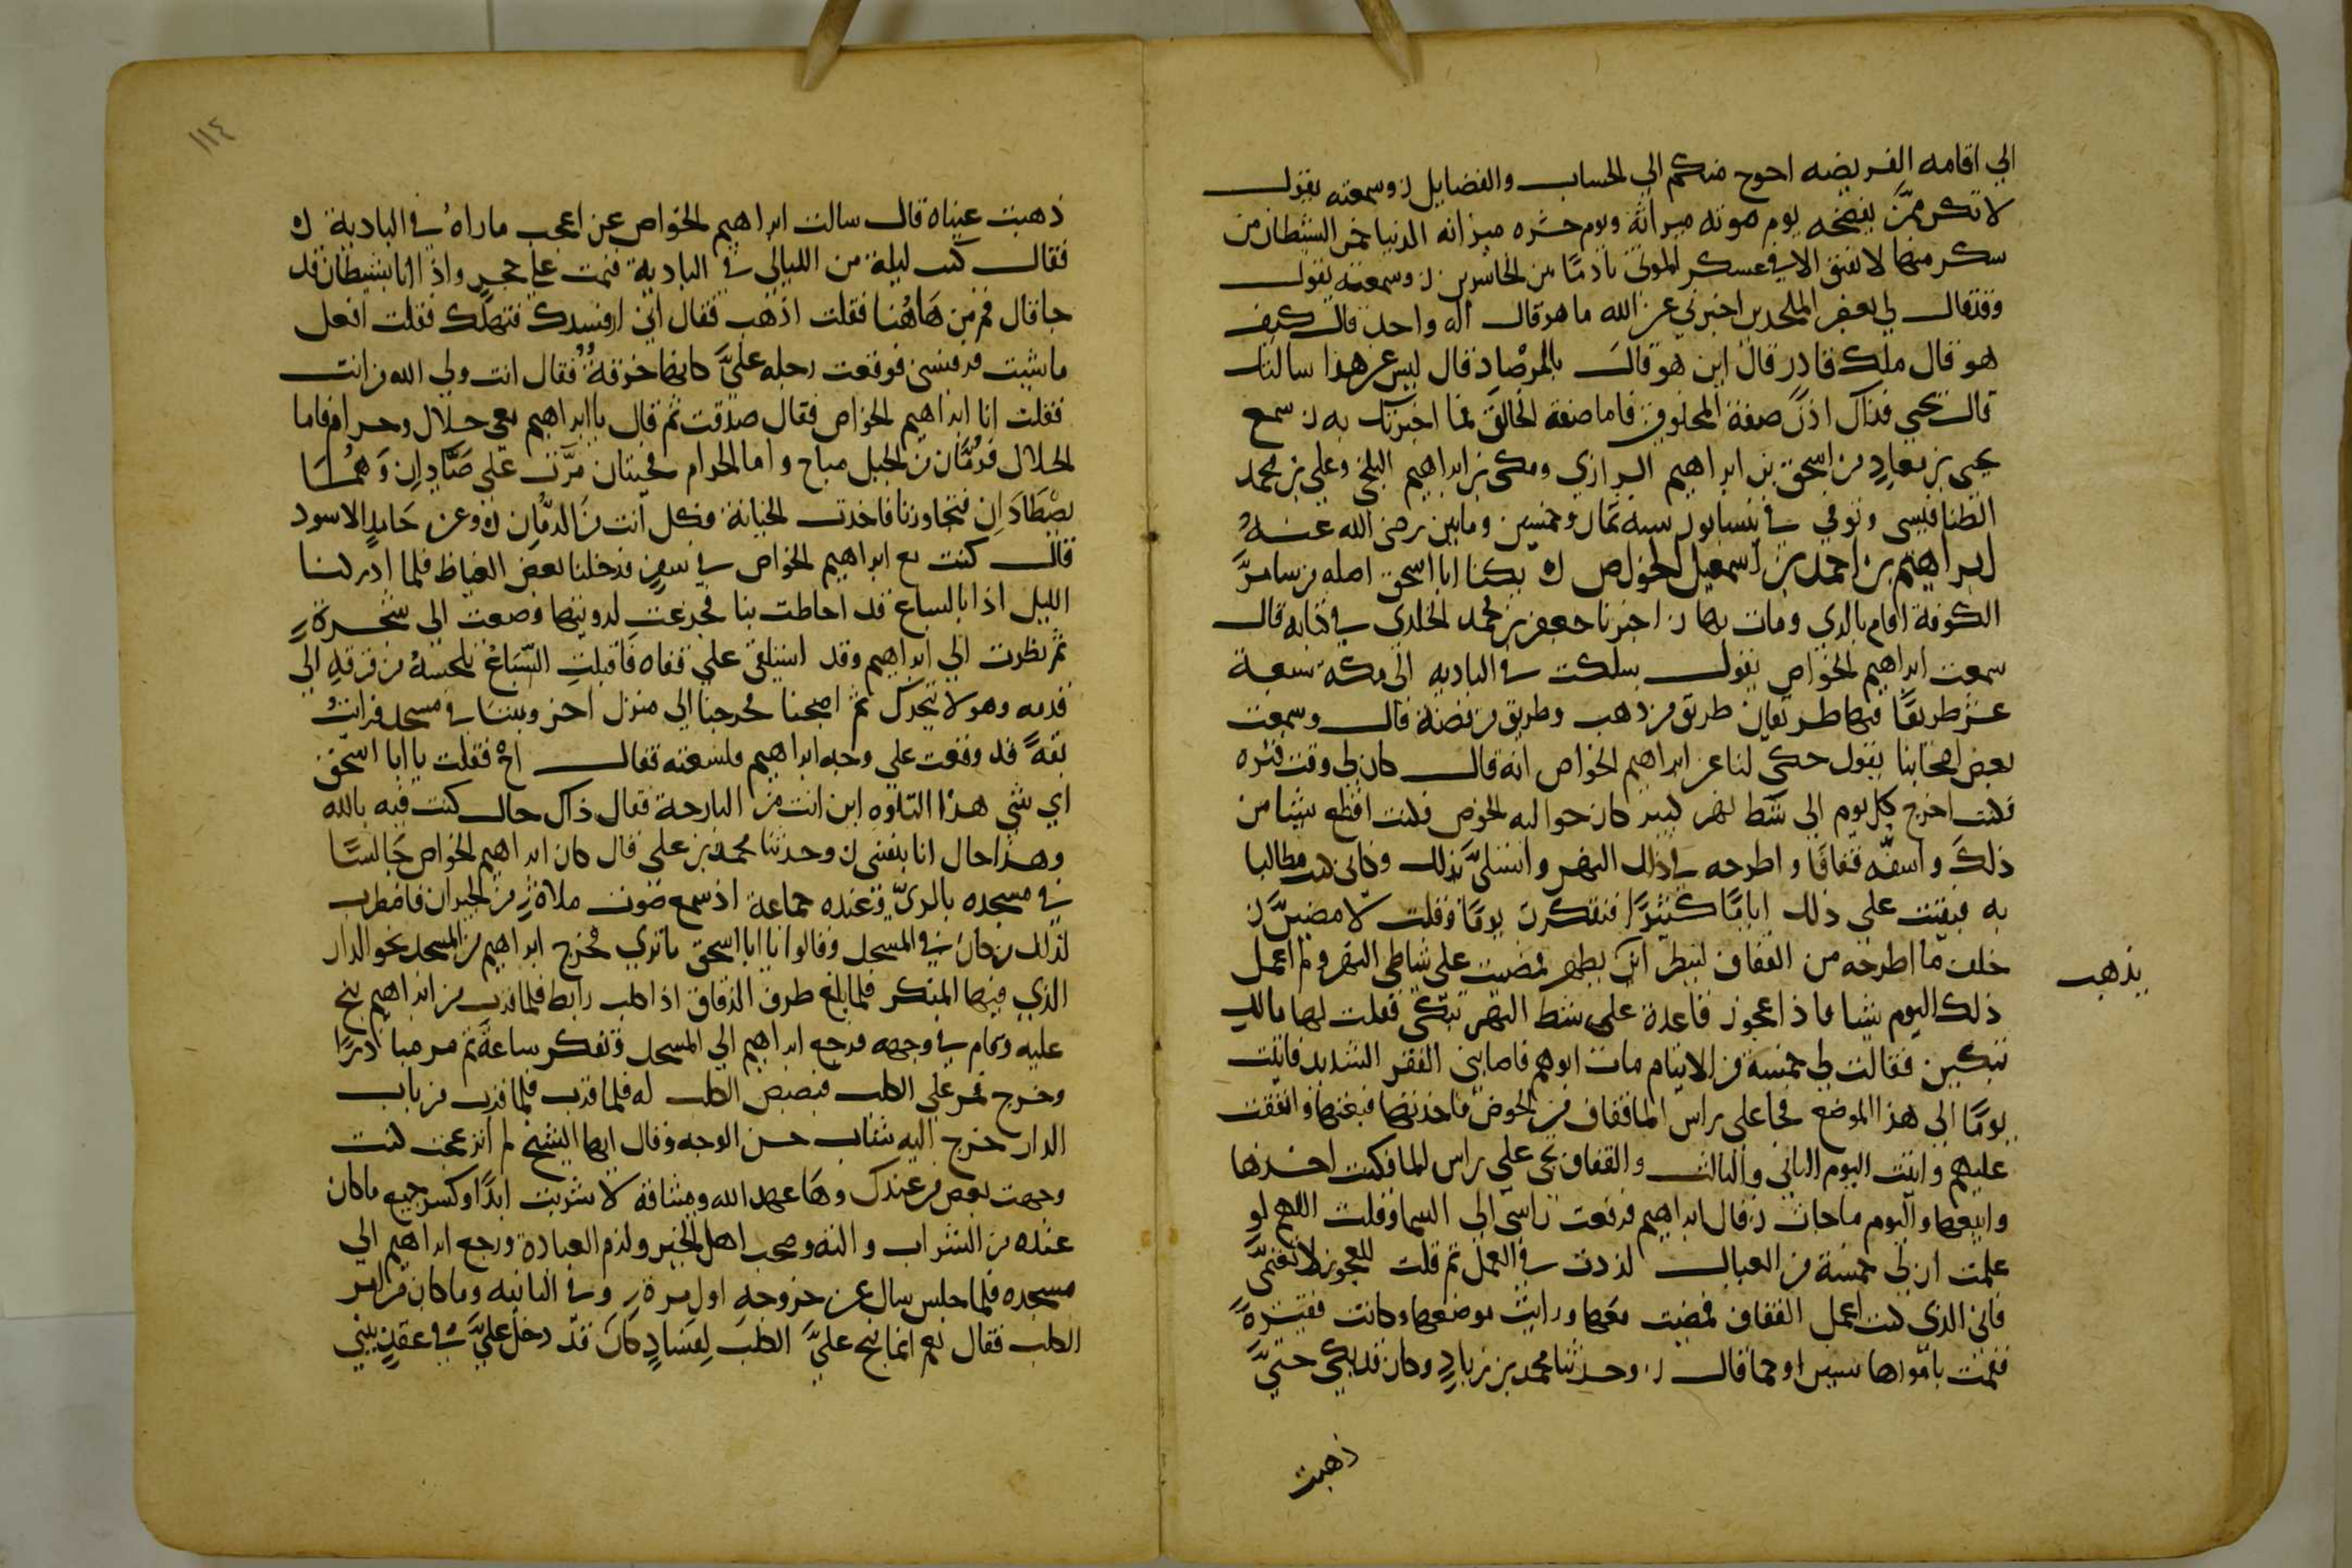 الي اقامه الفريضه احوج منكم الي الحساب والفضايل ن وسمعته يقول
لا تكن ممن يفضحه يوم موته ميراثه ويوم حشره ميزانه الدنيا خمر الشيطان من
سكر منها لا يفيق الا في عسكر الموتي نادمًا من الخاسرين ن وسمعته يقول
وقد قال لي بعض الملحدين اخبرني عن الله ما هو قال اله واحد قال كيف
هو قال ملك قادر قال اين هو قال بالمرصاد قال ليس عن هذا سالناك
قال يحيي فذاك اذن صفة المخلوق فاما صفة الخالق فما اخبرتك به ن سمع
يحيي بن معاذ من اسحق بن ابراهيم الرازي ومكي بن ابراهيم البلخي وعلي بن محمد
الطنافسي وتوفي في نيسابور سنه ثمان وخمسين ومايتين رضي الله عنه
ابراهيم بن احمد بن اسمعيل الخواص ن يكنا ابا اسحق اصله من سامرَّ
الكوفة اقام بالري ومات بها ن اخبرنا جعفر بن محمد الخلدي في كتابه قال
سمعت ابراهيم الخواص يقول سلكت في الباديه الي مكة سبعة
عشر طريقًا فيها طريقان طريق من ذهب وطريق من فضة قال وسمعت
بعض اصحابنا يقول حكي لنا عن ابراهيم الخواص انه قال كان لي وقت فتره
فكنت اخرج كل يوم الي شط نهر كبير كان حواليه الخوص فكنت اقطع شيئا من
ذلك واسفّه قفافًا واطرحه في ذلك النهر واتسليَّ بذلك وكاني كنت مطالبا
به فبقيت علي ذلك ايامًا كثيرًا فتفكرت يومًا وقلت لامضينَّ ن
خلف ما اطرحه من القفاف لينظر اين يطهر فمضيت علي شاطي النهر ولم اعمل
يذهب
ذلك اليوم شيا فاذا عجوز قاعدة علي شط النهر تبكي فقلت لها مالكِ
تبكين فقالت لي خمسة من الايتام مات ابوهم فاصابني الفقر الشديد فاتيت
يومًا الي هذا الموضع فجا علي راس الما قفاف من الخوص فاخذتها فبعتها وانفقت
عليهم واتيت اليوم الثاني والثالث والقفاف تجي علي راس الما فكنت اخذها
وابيعها واليوم ما جات ن قال ابراهيم فرفعت راسي الي السما وقلت اللهم لو
علمت ان لي خمسة من العيال لزدت في العمل ثم قلت للعجوز لا تغتميَّ
فاني الذي كنت اعمل القفاف فمضيت معها ورايت موضعها وكانت فقيرةً
فقمت بامورها سنين او كما قال ن وحدثنا محمد بن زيادٍ وكان قد بكي حتيَّ
ذهبت
١١٤
ذهبت عيناه قال سالت ابراهيم الخواص عن اعجب ماراهُ في البادية ن
فقال كنت ليلة من الليالي في البادية فنمت علي حجرٍ واذا انا بشيطان قد
جا قال قم من هَاهُنا فقلت اذهب فقال اني ارفسك فتهلك فقلت افعل
ما شيت فرفسني فوقعت رجله عليَّ كانها خرقةٌ فقال انت ولي الله من انت
فقلت انا ابراهيم الخواص فقال صدقت ثم قال يا ابراهيم معي حلال وحرام فاما
الحلال فرُمَّان من الجبل مباح واما الحرام فحيتان مرّت علي صَيَّادان وَهُمَا
يصْطَادَان فتخاونا فاخذت الخيانة فكل انت من الرمَّان ن وعن حَامدٍ الاسود
قال كنت مع ابراهيم الخواص في سفرٍ فدخلنا بعض الغياظ فلما ادركنا
الليل اذا بالسباع قد احاطت بنا فجزعت لرويتها وصعدت الي شجرةٍ
ثم نظرت الي ابراهيم وقد استلقي علي قفاه فاقبلت السّباع تلحسهُ من قرنه الي
قدمه وهو لا يتحرك ثم اصبحنا فخرجنا الي منزل اخر وبتنا في مسجد فرايتُ
بقةً قد وقعت علي وجه ابراهيم فلسعته فقال اخ فقلت يا ابا اسحق
اي شي هذا التاوه اين انت من البارحة فقال ذاك حال كنت فيه بالله
وهذا حال انا بنفسي ن وحدثنا محمد بن علي قال كان ابراهيم الخواص جَالسًا
في مسجده بالريّ وعنده جماعة اذ سمع صوت ملاهٍ من الجيران فاضطرب
لذلك من كان في المسجد وقالوا يا ابا اسحق ماتري فخرج ابراهيم من المسجد نحو الدار
الذي فيها المنكر فلما بلغ طرف الزقاق اذا كلب رابط فلما قرب من ابراهيم نبح
عليه وقام في وجهه فرجع ابراهيم الي المسجد وتفكر ساعةً ثم مر مبادرًا
وخرج فمر علي الكلب فبصبص الكلب له فلما قرب فلما قرب من باب
الدار خرج اليه شاب حسن الوجه وقال ايها الشيخ لم انزعجت كنت
وجهت بعض من عندك وهَا عهد الله وميثاقه لا شربت ابدًا وكسر جميع ماكان
عنده من الشراب والته وصحب اهل الخير ولزم العبادة ورجع ابراهيم الي
مسجده فلما جلس سال عن خروجه اول مرةٍ وفي الثانيه وما كان من امر
الكلب فقال نعم انما نبح عليَّ الكلب لِفسَادٍ كان قد دخل عليَّ في عقدٍ بيني